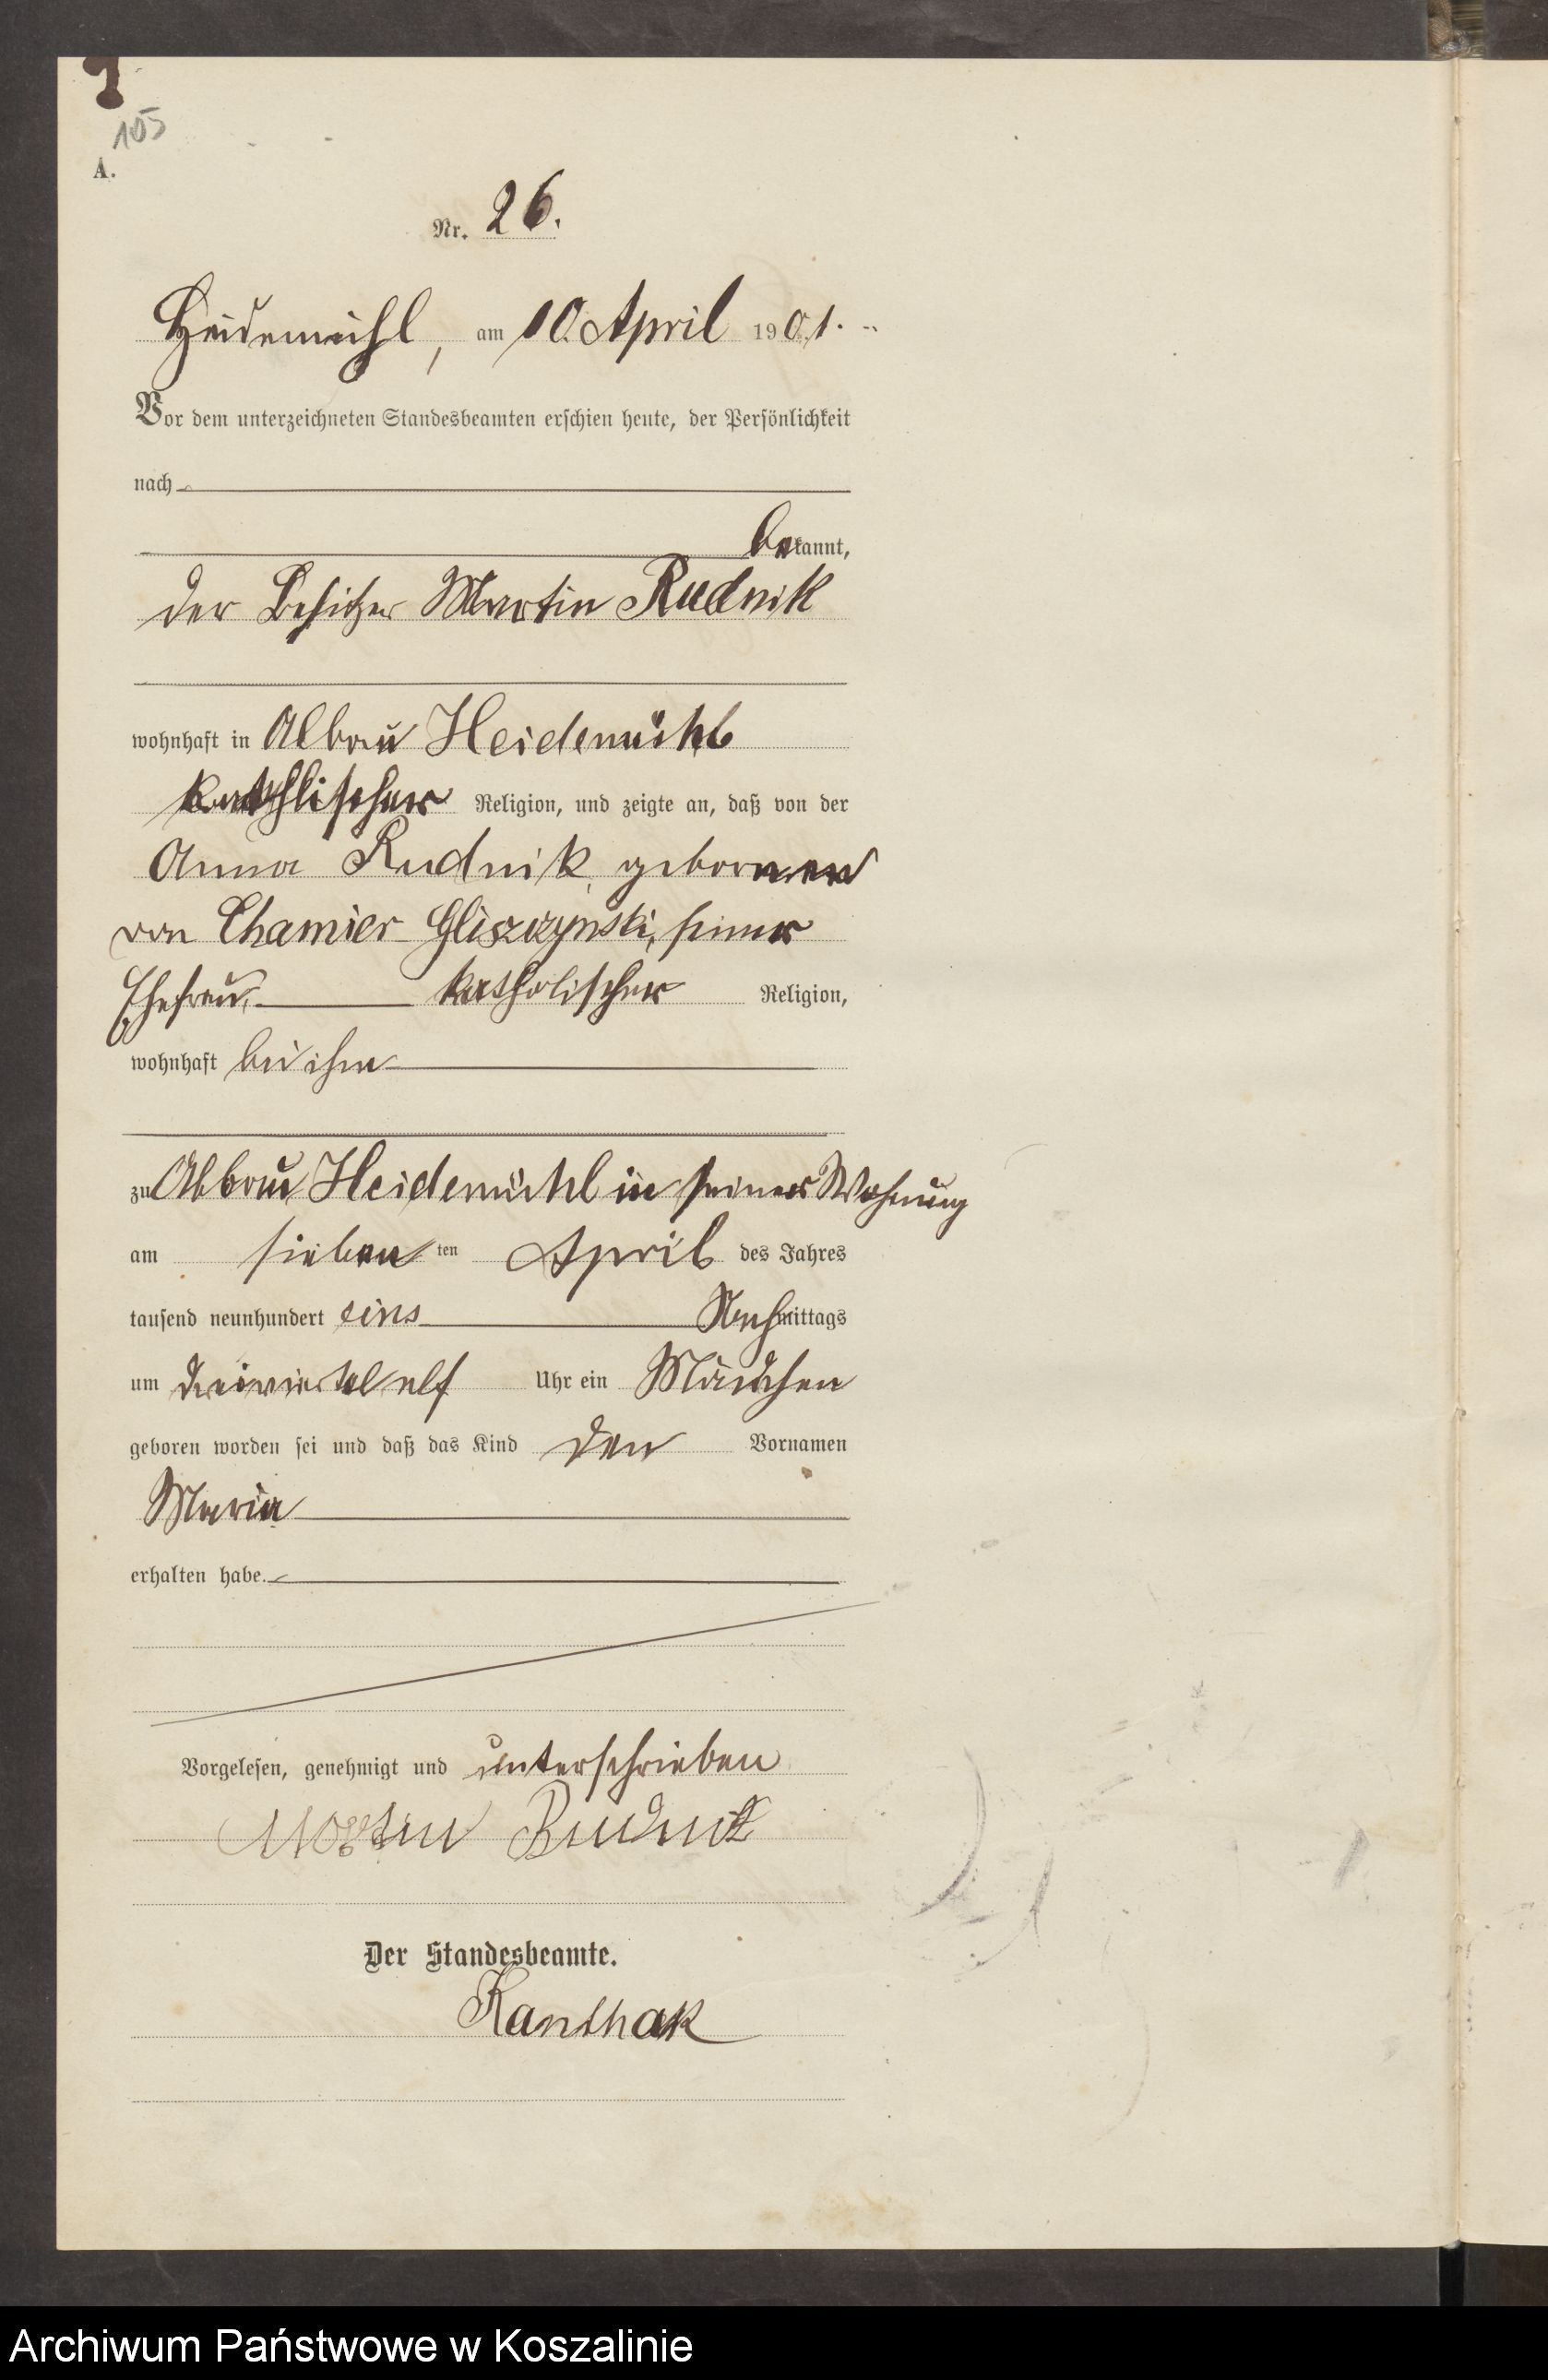 105
A.
Nr. 26.
Heidemühl, am 10. April 1901.
Vor dem unterzeichneten Standesbeamten erschien heute, der Persönlichkeit
nach
bekannt,
der Besitzer Martin Rudnik
wohnhaft in Abbau Heidemühl
katholischer Religion, und zeigte an, daß von der
Anna Rudnik, geborenen
von Chamier Gliszczynski, seiner
Ehefrau, katholischer Religion,
wohnhaft bei ihm
zu Abbau Heidemühl in seiner Wohnung
am siebenten April des Jahres
tausend neunhundert eins Nachmittags
um dreiviertel elf Uhr ein Mädchen
geboren worden sei und daß das Kind den Vornamen
Maria
erhalten habe.
Vorgelesen, genehmigt und unterschrieben
Martin Rudnik
Der Standesbeamte.
Kanthak
Archiwum Państwowe w Koszalinie